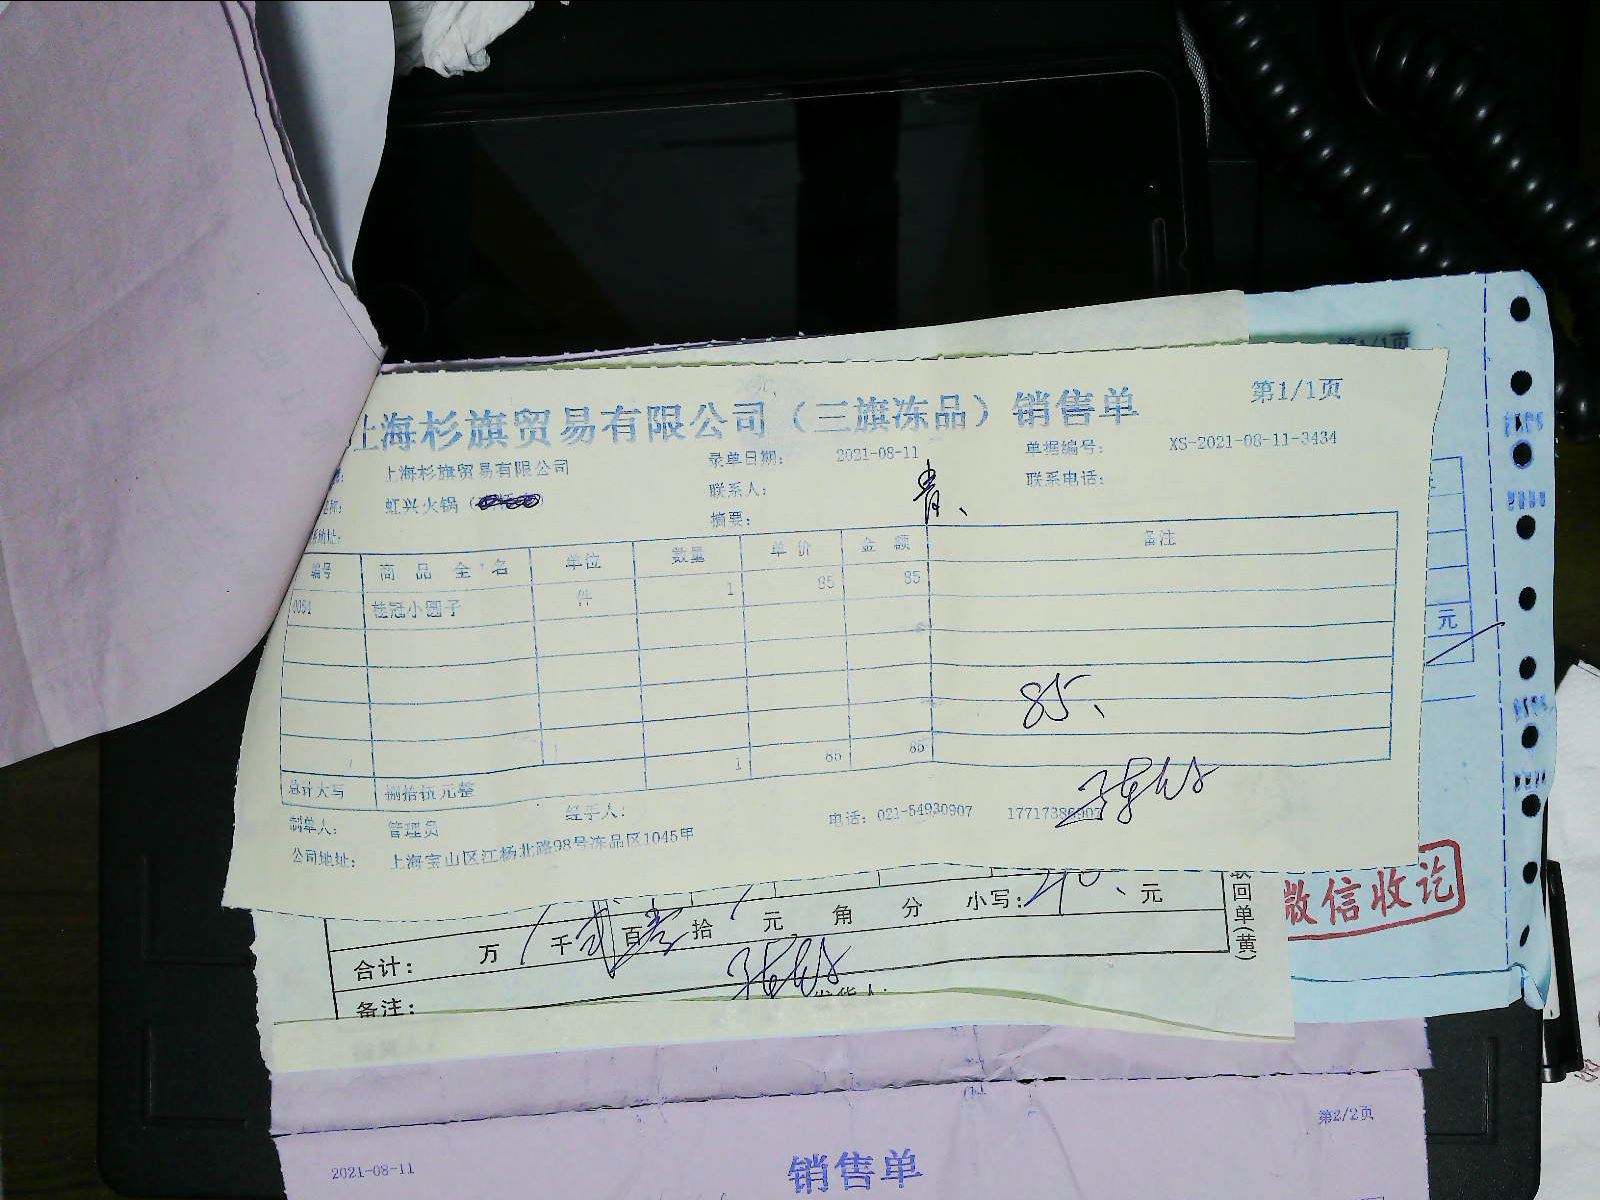 第1/1页
上海杉旗贸易有限公司（三旗冻品）销售单
上海杉旗贸易有限公司 录单日期: 2021-08-11 单据编号: XS-2021-08-11-3434
虹兴火锅 联系人: 联系电话:
地址: 摘要: 青、
编号 商品全名 单位 数量 单价 金额 备注
0051 桂冠小圆子 件 1 85 85
85、
1 85 85
总计大写 捌拾伍元整
制单人: 管理员 经手人: 电话: 021-54930907
公司地址: 上海宝山区江杨北路98号冻品区1045甲
第1/1页
元
微信收讫
合计: 万 千 百 拾 元 角 分 小写: 元
回单(黄)
备注:
第2/2页
2021-08-11 销售单